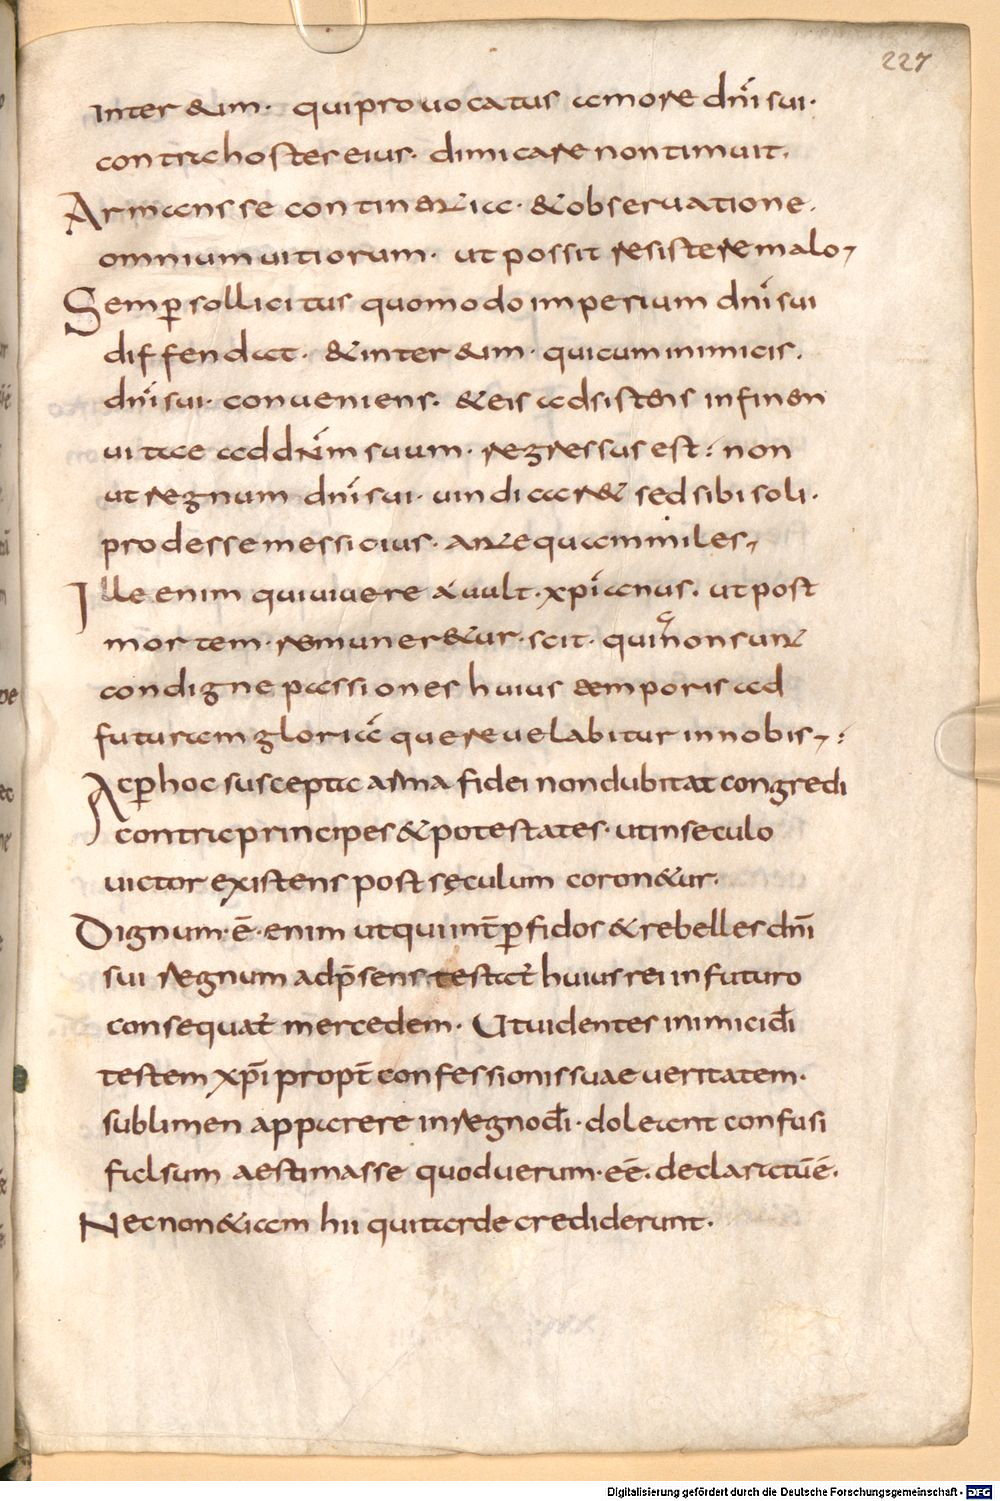 227
inter &um· qui prouocatus amore dni sui·
contra hostes eius· dimicare non timuit.
Armans se continentia· & obseruatione·
omnium uitiorum· ut possit resistere malo,
Semp sollicitus quomodo imperium dni sui
diffendat· & inter &um· qui cum inimicis·
dni sui· conueniens· & eis adsistens in finem
uitae ad dnm suum· regressus est· non
ut regnum dni sui· uindicar& sed sibi soli·
prodesse messi cius· antequam miles,
Ille enim qui uiuere uult· xpianus· ut post
mortem· remuner&ur· scit· qui non sunt
condigne passiones huius temporis ad
futuram gloriā que reuelabitur in nobis,
Ac p hoc suscepta arma fidei non dubitat congredi
contra principes & potestates· ut in seculo
uictor existens post sęculum coron&ur·
Dignum·ē·enim ut qui int pfidos & rebelles dni
sui regnum ad psens testat huius rei in futuro
consequat mercedem· Ut uidentes inimici di
testem xpi propt confessionis suae ueritatem·
sublimen apparere in regno di· doleant confusi
falsum aestimasse quod uerum· eē· declaratū ē·
Nec non & iam hii qui tarde crediderunt·
Digitalisierung gefördert durch die Deutsche Forschungsgemeinschaft · DFG